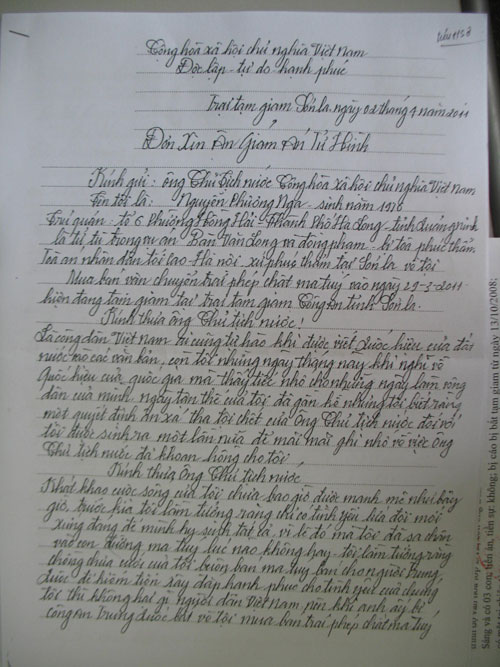 Cộng hòa xã hội chủ nghĩa Việt Nam
Độc lập - tự do - hạnh phúc
Trại tạm giam Sơn la, ngày 02 tháng 4 năm 2011
Đơn Xin Ân Giảm Án Tử Hình
Kính gửi: ông Chủ Tịch nước Cộng hòa xã hội chủ nghĩa Việt Nam
Tên tôi là: Nguyễn Phương Nga - sinh năm
Trú quán: tổ 6 Phường Hồng Hải - Thành Phố Hạ Long - tỉnh Quảng Ninh
là tử tù trong vụ án Văn Long và đồng phạm - bị tòa phúc thẩm
Tòa án nhân dân tối cao Hà nội xử phúc thẩm tại Sơn la về tội
Mua bán vận chuyển trái phép chất ma túy vào ngày 29-3-2011
hiện đang tạm giam tại trại tạm giam Công an tỉnh Sơn la.
Kính thưa ông Chủ tịch nước!
Là công dân Việt Nam ai cũng tự hào khi được viết Quốc hiệu của đất
nước vào các văn bản, còn tôi những ngày tháng này khi nghĩ về
Quốc hiệu của quốc gia mà thấy tiếc nhớ cho những ngày làm công
dân của mình, ngày tận thế của tôi đã gần kề nhưng tôi biết rằng
một quyết định ân xá tha tội chết của ông Chủ tịch nước đối với
tôi được sinh ra một lần nữa để mãi mãi ghi nhớ về việc ông
Chủ tịch nước đã khoan hồng cho tôi
Kính thưa ông Chủ tịch nước
Khát khao cuộc sống của tôi chưa bao giờ được mạnh mẽ như bây
giờ, trước kia tôi lầm tưởng rằng chỉ có tình yêu lứa đôi mới
xứng đáng để mình hy sinh tất cả, vì lẽ đó mà tôi đã sa chân
vào con đường ma túy lúc nào không hay - tôi lầm tưởng rằng
chồng chưa cưới của tôi buôn bán ma túy bán cho người Trung
Quốc để kiếm tiền xây đắp hạnh phúc cho tình yêu của chúng
tôi thì không hại gì người dân Việt Nam nên khi anh ấy bị
công an Trung Quốc bắt về tội mua bán trái phép chất ma túy
bị cáo bị bắt tạm giam từ ngày 11/10/2008;
Sáng và có 03 con; tiền án, tiền sự: không;